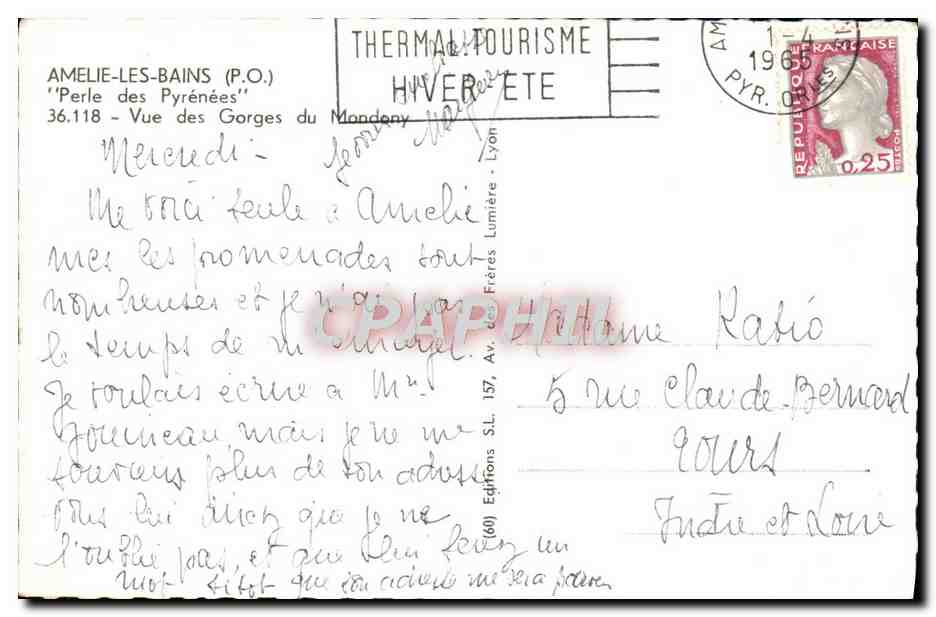 AMELIE-LES-BAINS (P.O.)
"Perle des Pyrénées"
36.118 - Vue des Gorges du Mondony
THERMAL TOURISME
HIVER ETE
AM
1-4
1965
PYR. ORLES
REPUBLIQUE FRANÇAISE
POSTES
0,25
Mercredi -
Me voici seule à Amélie
mes les promenades sont
nombreuses et je n'ai pas
le temps de m'ennuyer.
Je voulais écrire à Mme
mais je ne me
souviens plus de son adresse
vous lui direz que je ne
l'oublie pas, et que lui ferez un
mot sitôt que son adresse me sera
(60) Editions S.L. 157, Av. des Frères Lumière - Lyon
CPAPHIL
Madame Ratié
5 rue Claude-Bernard
Tours
Indre et Loire